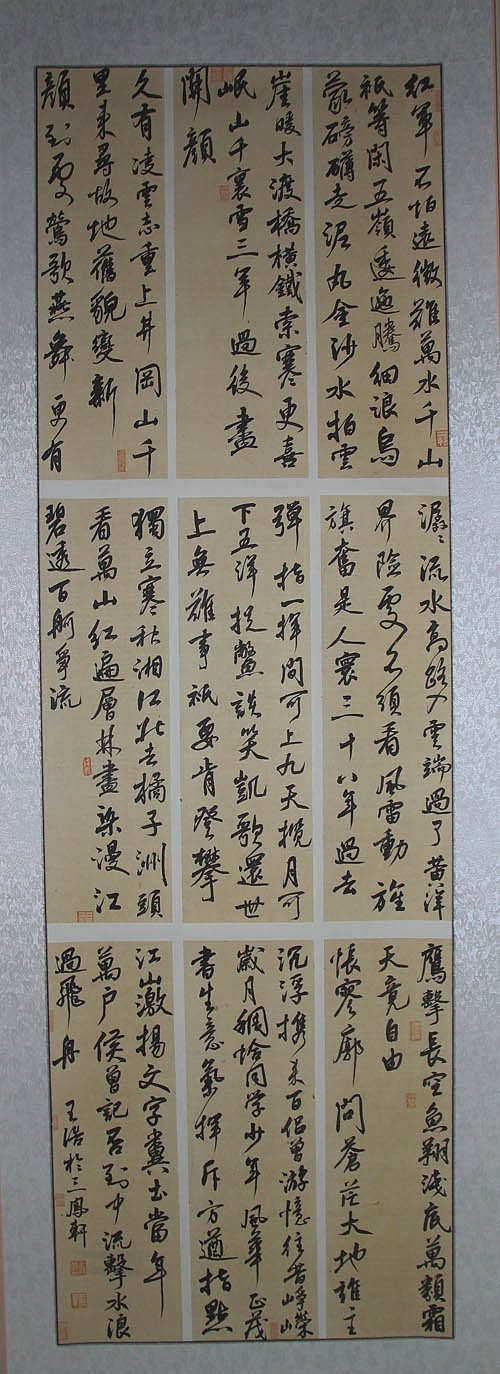 紅軍不怕遠徵難萬水千山
祇等閑五嶺逶迤騰細浪烏
蒙磅礴走泥丸金沙水拍雲
崖暖大渡橋橫鐵索寒更喜
岷山千裏雪三軍過後盡
開顏
久有凌雲志重上井岡山千
里來尋故地舊貌變新
顏到處鶯歌燕舞更有
潺々流水高路入雲端過了黄洋
界險處不須看風雷動旌
旗奮是人寰三十八年過去
彈指一揮間可上九天攬月可
下五洋捉鱉談笑凱歌還世
上無難事祇要肯登攀
獨立寒秋湘江北去橘子洲頭
看萬山紅遍層林盡染漫江
碧透百舸爭流
鷹擊長空魚翔淺底萬類霜
天競自由
悵寥廓問蒼茫大地誰主
沉浮攜來百侶曾游憶往昔崢嶸
歲月稠恰同学少年風華正茂
書生意氣揮斥方遒指點
江山激揚文字糞土當年
萬户侯曾記否到中流擊水浪
遏飛舟 王浩於三鳳軒